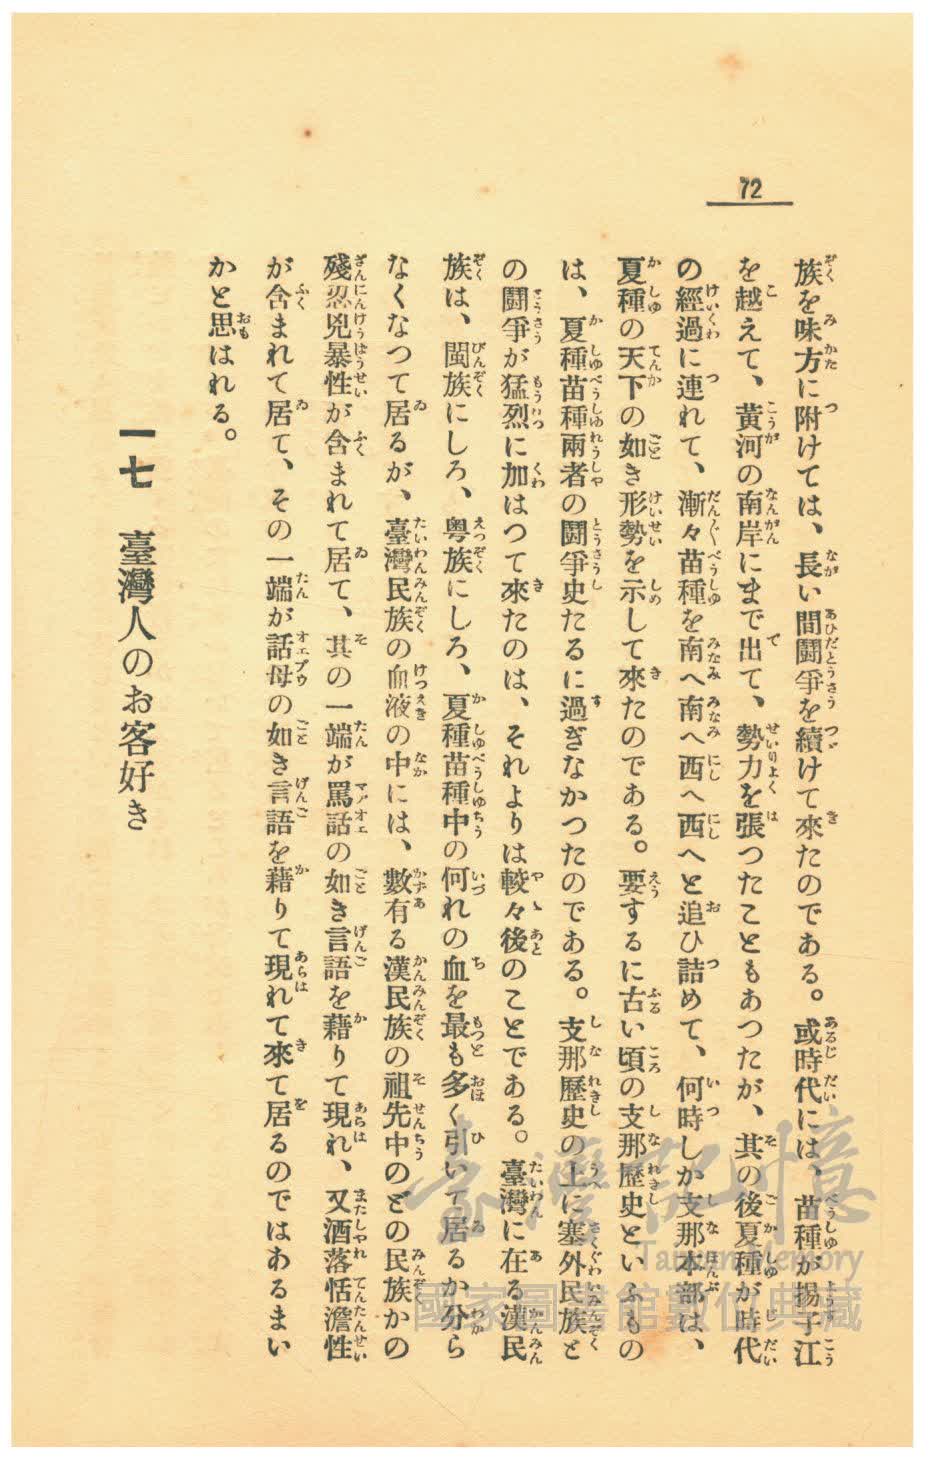 72
族を味方に附けては、長い間鬪爭を續けて來たのである。或時代には、苗種が揚子江
を越えて、黃河の南岸にまで出て、勢力を張つたこともあつたが、其の後夏種が時代
の經過に連れて、漸々苗種を南へ南へ西へ西へと追ひ詰めて、何時しか支那本部は、
夏種の天下の如き形勢を示して來たのである。要するに古い頃の支那歷史といふもの
は、夏種苗種兩者の鬪爭史たるに過ぎなかつたのである。支那歷史の上に塞外民族と
の鬪爭が猛烈に加はつて來たのは、それよりは較々後のことである。臺灣に在る漢民
族は、閩族にしろ、粤族にしろ、夏種苗種中の何れの血を最も多く引いて居るか分ら
なくなつて居るが、臺灣民族の血液の中には、數有る漢民族の祖先中のどの民族かの
殘忍兇暴性が含まれて居て、其の一端が罵話の如き言語を藉りて現れ、又酒落恬澹性
が含まれて居て、その一端が話母の如き言語を藉りて現れて來て居るのではあるまい
かと思はれる。
一七 臺灣人のお客好き
臺灣記憶
Taiwan Memory
國家圖書館數位典藏